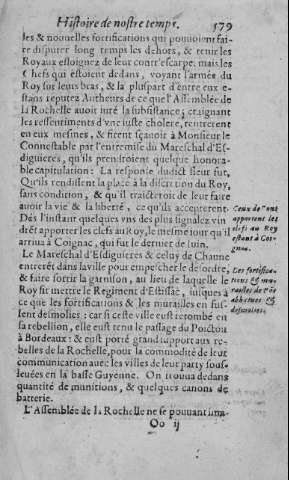 Histoire de nostre temps. 579
les & nouuelles fortifications qui pouuoient fai-
re disputer long temps les dehors, & tenir les
Royaux esloignez de leur contr'escarpe: mais les
Chefs qui estoient dedans, voyant l'armée du
Roy sur leurs bras, & la pluspart d'entre eux e-
stans reputez Autheurs de ce que l'Assemblée de
la Rochelle auoit iuré sa subsistance; craignant
les ressentiments d'vne iuste cholere, rentrerent
en eux mesmes, & firent sçauoir à Monsieur le
Connestable par l'entremise du Mareschal d'Es-
diguieres, qu'ils prendroient quelque honora-
ble capitulation: La responsе dudict sieur fut,
Qu'ils rendissent la place à la discretion du Roy,
sans condition, & qu'il traicteroit de leur faire
auoir la vie & la liberté, ce qu'ils accepterent.
Dés l'instant quelques vns des plus signalez vin-
drẽt apporter les clefs au Roy, le mesme iour qu'il
arriua à Coignac, qui fut le dernier de Iuin.
Ceux de
apportent les
clefs au Roy
estant à Coi-
gnac.
Le Mareschal d'Esdiguieres & celuy de Chaune
entrerẽt dans la ville pour empescher le desordre,
& faire sortir la garnison, au lieu de laquelle le
Roy fit mettre le Regiment d'Estissac, iusques à
ce que les fortifications & les murailes en fus-
sent desmolies: car si ceste ville eust retombé en
sa rebellion, elle eust tenu le passage du Poictou
à Bordeaux: & eust porté grand support aux re-
belles de la Rochelle, pour la commodité de leur
communication auec les villes de leur party sous-
leuées en la basse Guyenne. On trouua dedans
quantité de munitions, & quelques canons de
batterie.
Les fortifica-
tions & mu-
railles de
abbatues &
desmolies.
L'Assemblée de la Rochelle ne se pouuant ima-
Oo ij